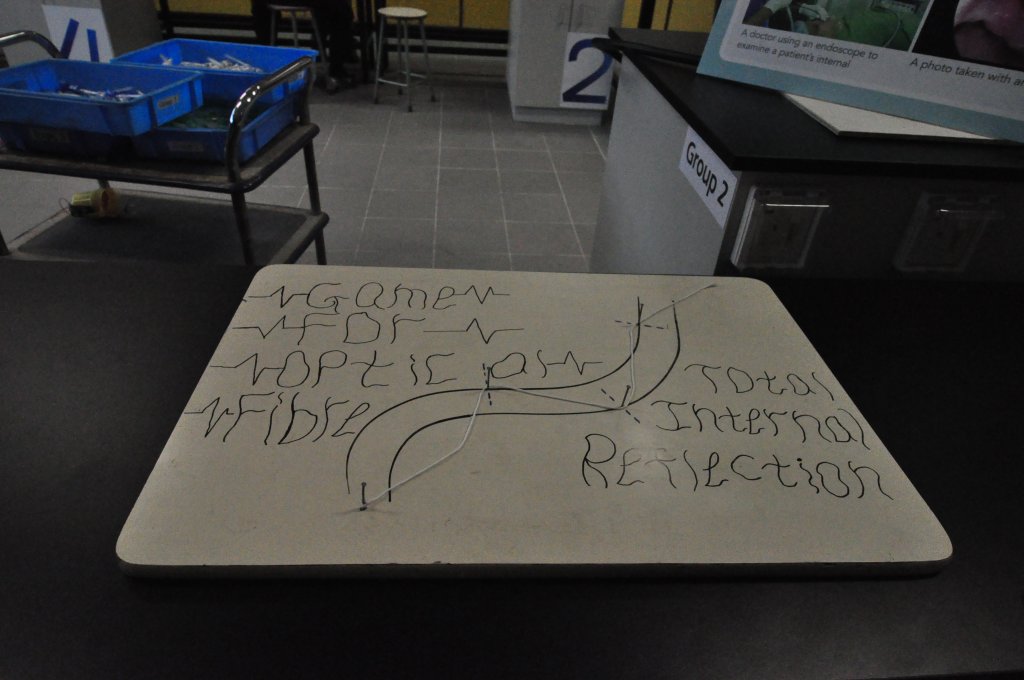 4
2
A doctor using an endoscope to
examine a patient's internal
A photo taken with an
Group 2
Game
For
Optical
Fibre
Total
Internal
Reflection